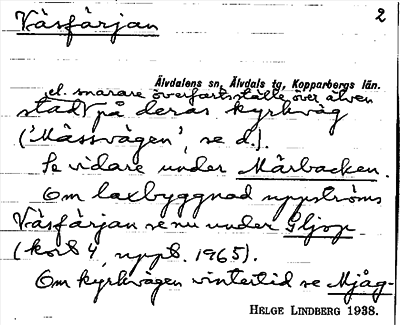 Väsfärjan
2
Älvdalens sn, Älvdals tg, Kopparbergs län.
el. snarare överfartsställe över älven
stad på deras kyrkväg
('Mässvägen', se d.).
Se vidare under Mårbacken.
Om laxbyggnad uppströms
Väsfärjan se nu under Gljop
(kort 4, uppt. 1965).
Om kyrkvägen vintertid se Mjåg-
HELGE LINDBERG 1938.